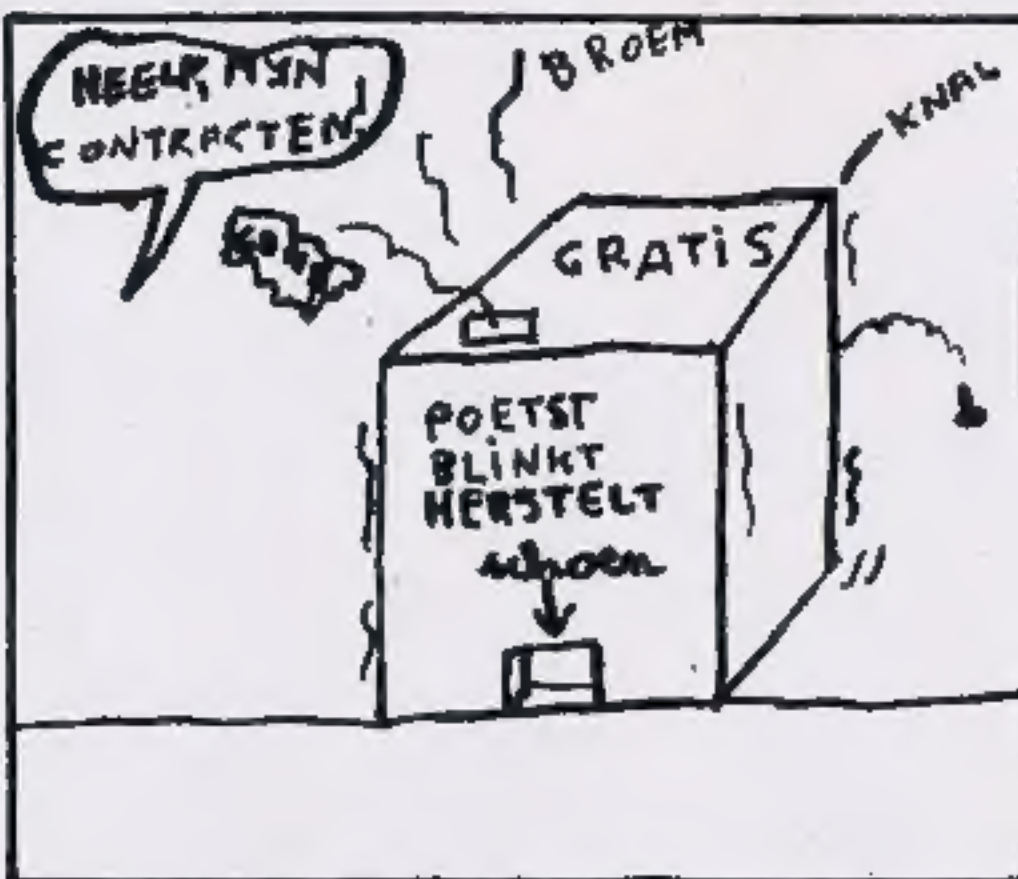 HEELP, MYN
CONTRACTEN!
BROEM
KNAL
GRATIS
POETST
BLINKT
HERSTELT
schoen